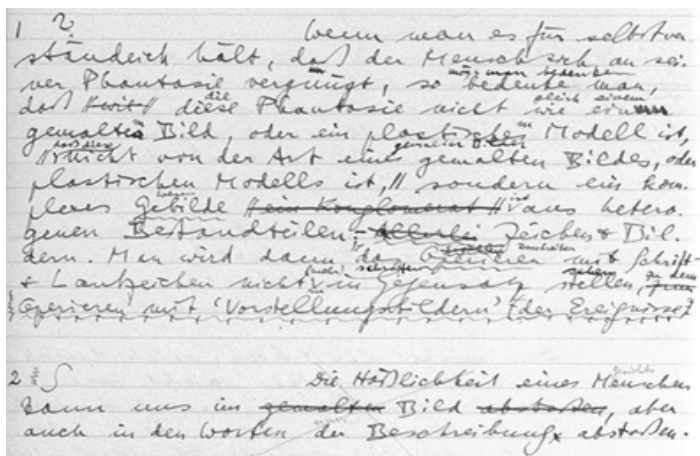 1 ? Wenn man es für selbstver
ständlich hält, daß der Mensch sich an sei-
ner Phantasie vergnügt, so bedenke man,
mag man bedenken
daß diese Phantasie nicht wie ein
die gleich einem
gemaltes Bild, oder ein plastisches Modell ist,
nicht von der Art eines gemalten Bildes, oder
daß diese
plastischen Modells ist, sondern ein kom-
plexes Gebilde ein Konglomerat aus hetero-
genen Bestandteilen: Zeichen & Bil-
dern. Man wird dann das Operieren mit Schrift-
& Lautzeichen nicht mehr in Gegensatz stellen
zu dem
Operieren mit 'Vorstellungsbildern' der Ereignisse
2 ∫ Die Häßlichkeit eines Menschen
kann uns im gemalten Bild abstoßen, aber
auch in den Worten der Beschreibung abstoßen.